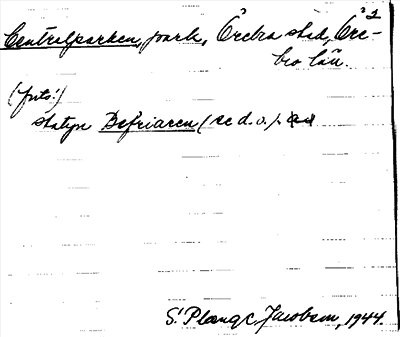 Centralparken, park, Örebro stad, Öre-
bro län.
(forts.)
statyn Befriaren (se d. o.).
S. Plange Jacobson, 1944.